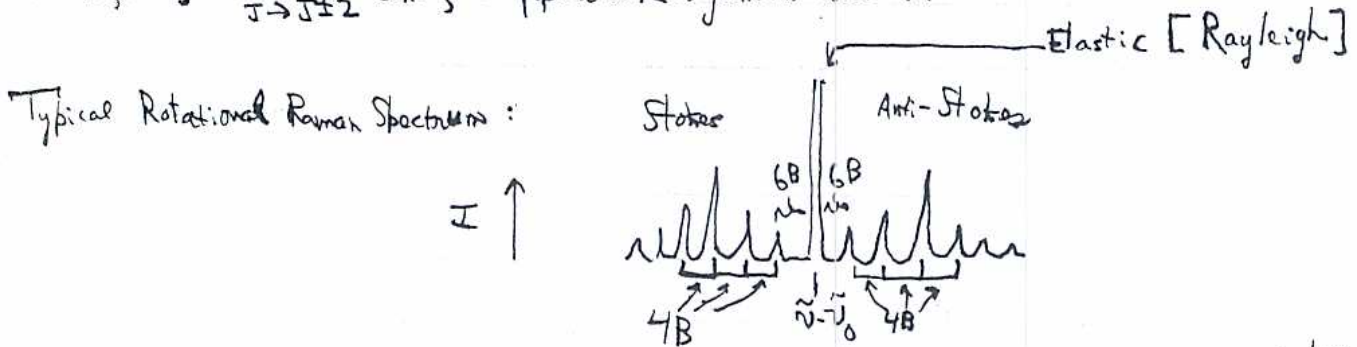 J→J±2
Elastic [Rayleigh]
Typical Rotational Raman Spectrum :
Stokes
Anti-Stokes
6B 6B
I
4B
ν̃-ν̃₀
4B